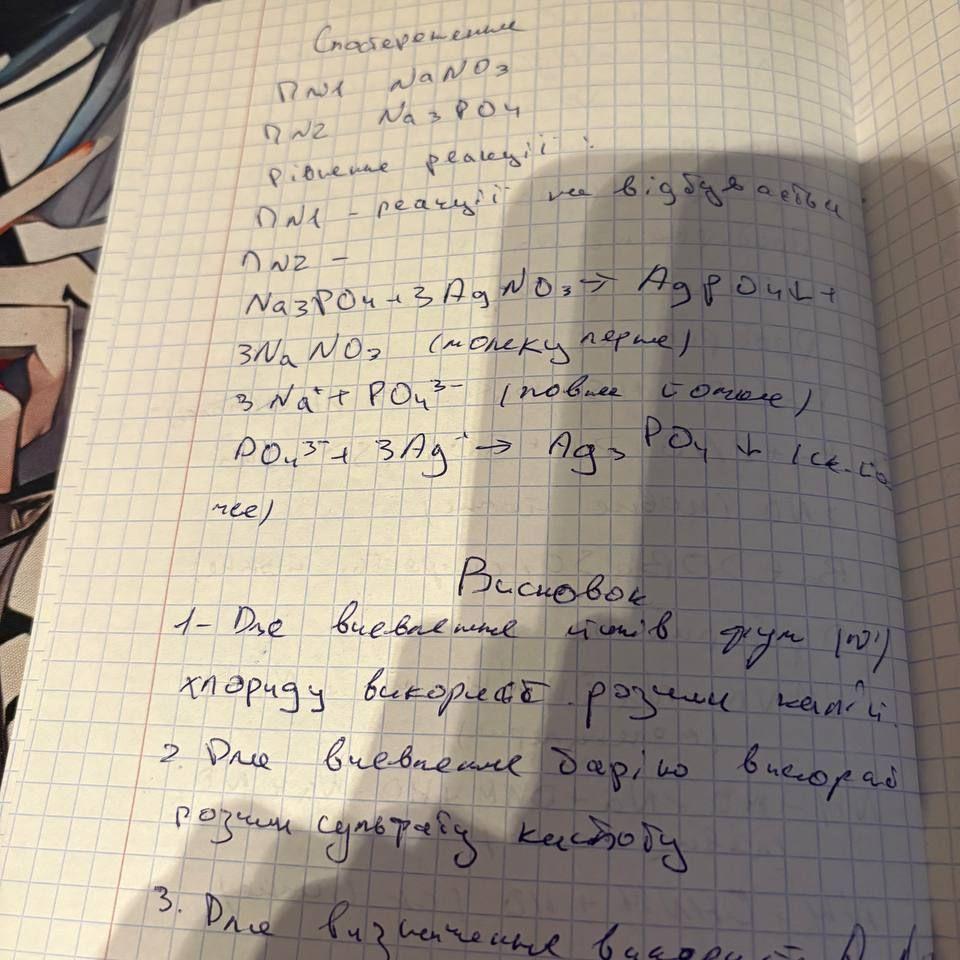 Спостереження
ПN1 NaNO3
ПN2 Na3PO4
рівнення реакції :
ПN1 - реакції не відбувається
ПN2 -
Na3PO4+3AgNO3→ AgPO4↓+
3NaNO3 (молекулерне)
3Na⁺+ PO4³⁻ (повне йонне)
PO4³⁻+ 3Ag⁺→ Ag3PO4↓ (ск. йо
нне)
Висновок
1- Для виевлення йонів
хлориду розчин
2. Для виевлення барію
розчин сульфату
3. Для визначення